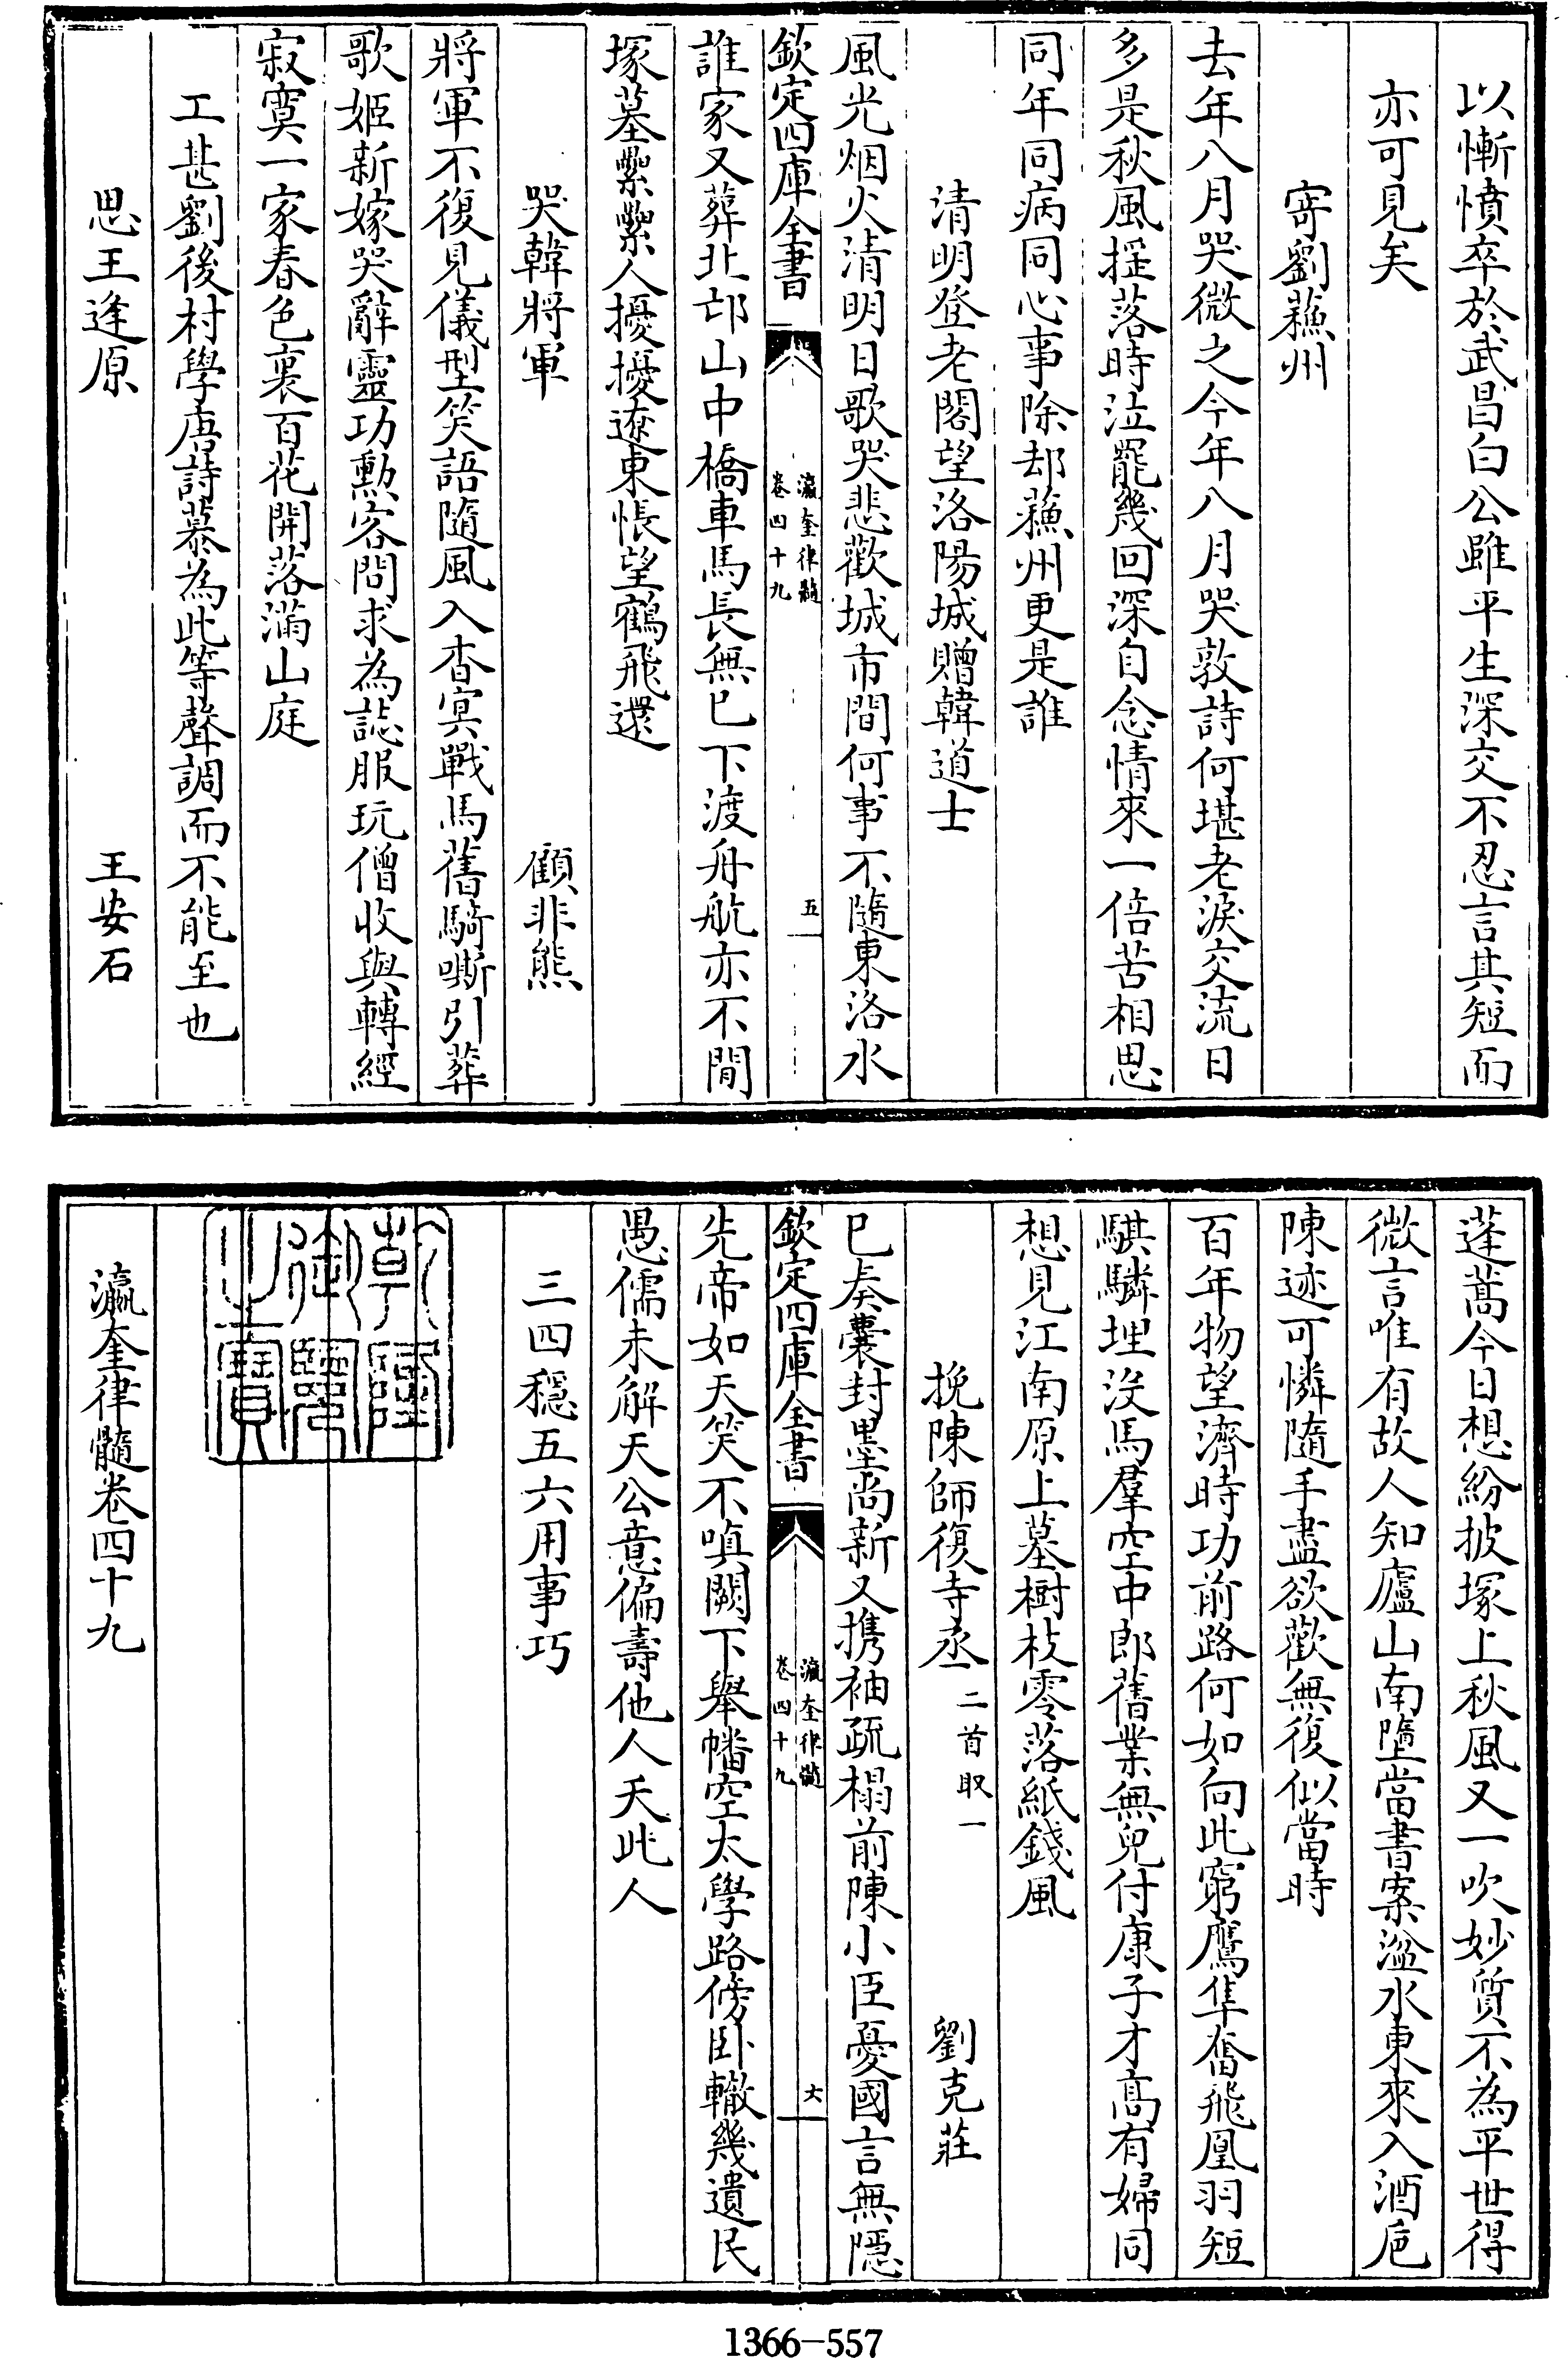 以慚憤卒於武昌白公雖平生深交不忍言其短而
亦可見矣
寄劉蘓州
去年八月哭微之今年八月哭敦詩何堪老淚交流日
多是秋風揺落時泣罷幾回深自念情來一倍苦相思
同年同病同心事除却蘓州更是誰
清明登老閣望洛陽城贈韓道士
風光烟火清明日歌哭悲歡城市間何事不隨東洛水
欽定四庫全書
瀛奎律髓
卷四十九
五
誰家又葬北邙山中橋車馬長無已下渡舟航亦不閒
塚墓纍纍人擾擾遼東悵望鶴飛還
哭韓將軍 顧非熊
將軍不復見儀型笑語隨風入杳冥戰馬舊騎嘶引葬
歌姬新嫁哭辭靈功勲客問求為誌服玩僧收與轉經
寂寞一家春色裏百花開落滿山庭
工甚劉後村學唐詩慕為此等聲調而不能至也
思王逢原 王安石
蓬蒿今日想紛披塚上秋風又一吹妙質不為平世得
微言唯有故人知廬山南墮當書案湓水東來入酒巵
陳迹可憐隨手盡欲歡無復似當時
百年物望濟時功前路何如向此窮鷹隼奮飛凰羽短
騏驎埋没馬羣空中郎舊業無兒付康子才高有婦同
想見江南原上墓樹枝零落紙錢風
挽陳師復寺丞 二首取一 劉克莊
已奏囊封墨尚新又携袖疏榻前陳小臣憂國言無隱
欽定四庫全書
瀛奎律髓
卷四十九
六
先帝如天笑不嗔闕下舉幡空太學路傍卧轍幾遺民
愚儒未解天公意偏壽他人夭此人
三四穩五六用事巧
乾隆
御覽
之寶
瀛奎律髓卷四十九
1366-557